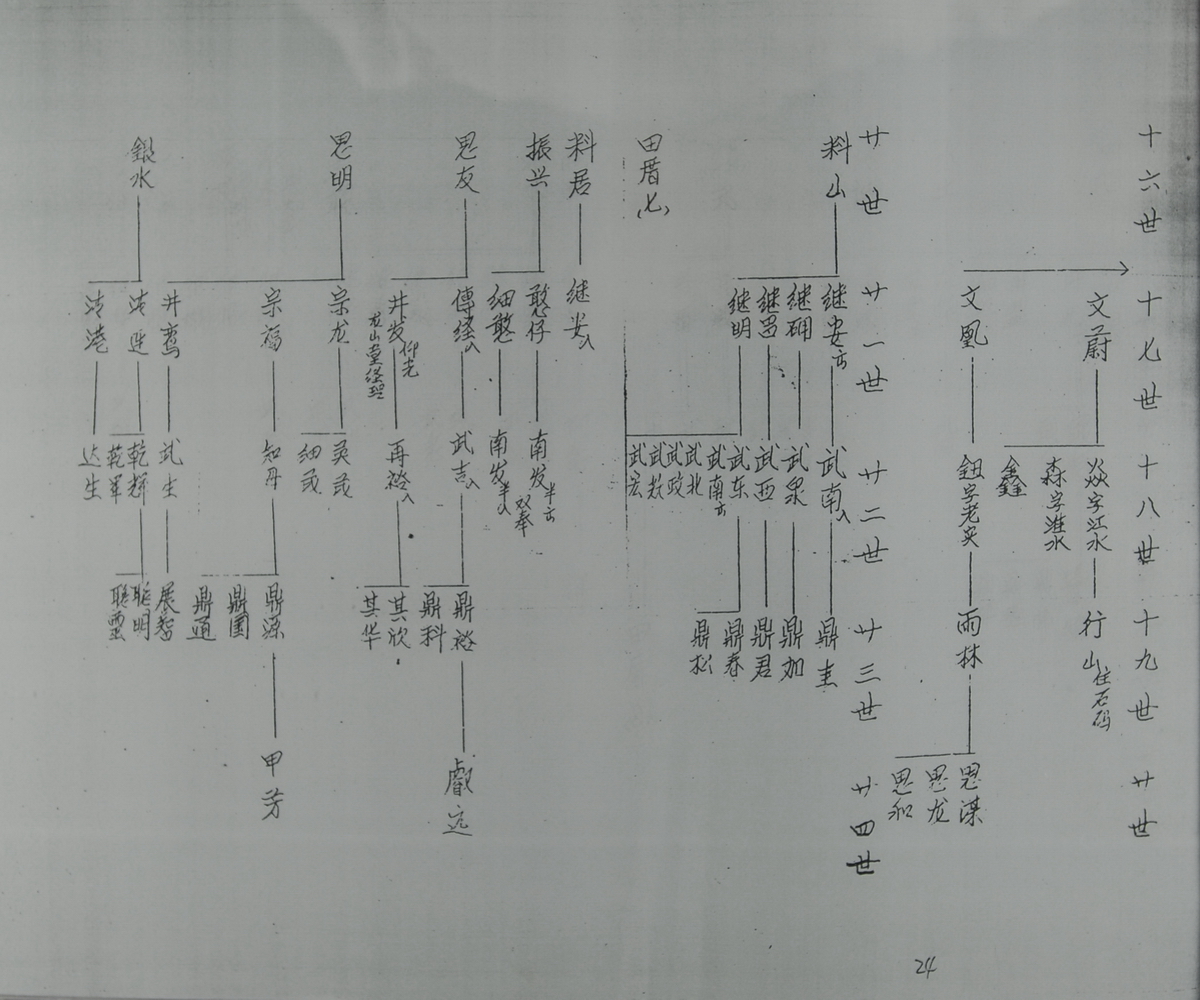 十六世
十七世
十八世
十九世
廿世
文蔚
焱字江水
行山
住石码
森字淮水
鑫
文凰
鈕字老实
雨林
思谋
思龙
思和
廿世
廿一世
廿二世
廿三世
廿四世
料山
继安
武南入
鼎圭
继硕
武泉
鼎如
继昌
武西
鼎君
继明
武东
鼎春
鼎松
武南
武北
武政
武宏
田厝(七)
料居
继安入
振兴
憨仔
南发
半
双奉
细憨
南发
半入
思友
傳经入
武吉入
鼎裕
鼎科
叡远
井发
仰光
龙山堂经理
再裕入
其欣
其华
思明
宗龙
宗福
鼎源
鼎国
鼎通
甲芳
井鸾
武生
展智
銀水
清连
乾辉
乾军
聪明
聪雲
清港
达生
24